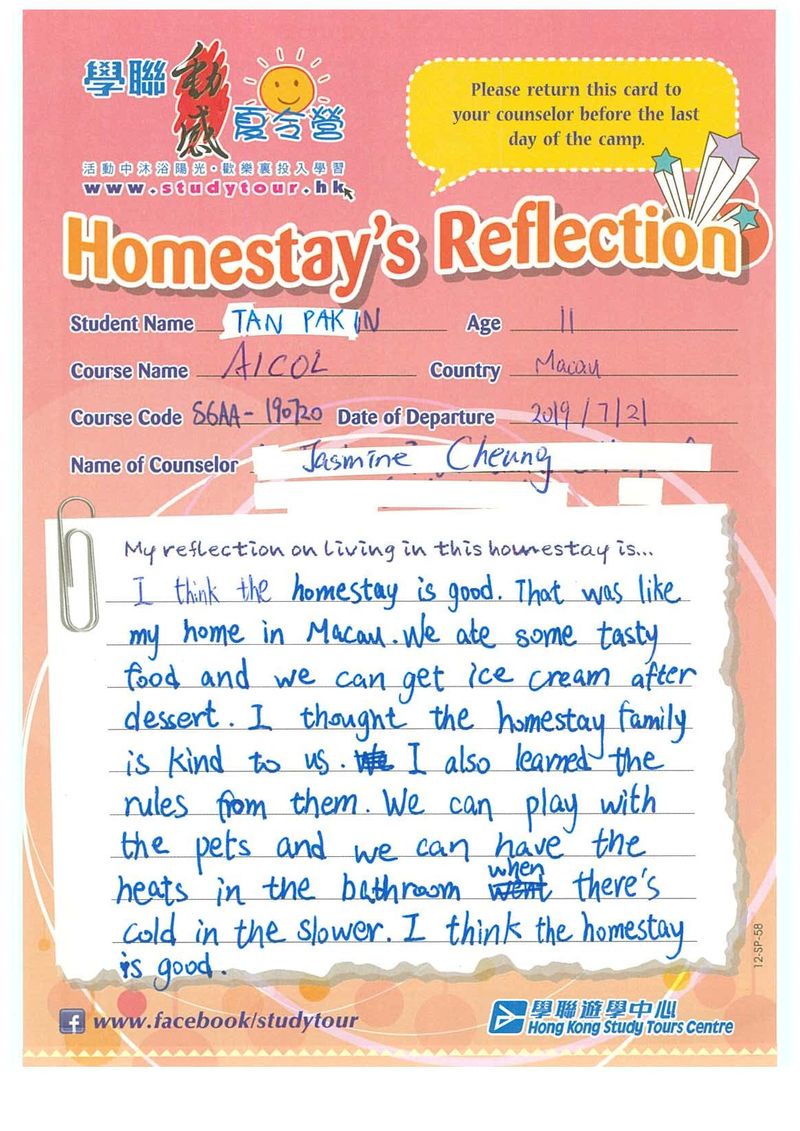 學聯 動感 夏令營
活動中沐浴陽光·歡樂裏投入學習
www.studytour.hk
Please return this card to
your counselor before the last
day of the camp.
Homestay's Reflection
Student Name TAN PAK IN Age 11
Course Name AICOL Country Macau
Course Code S6AA-190720 Date of Departure 2019/7/21
Name of Counselor Jasmine Cheung
My reflection on living in this homestay is...
I think the homestay is good. That was like
my home in Macau. We ate some tasty
food and we can get ice cream after
dessert. I thought the homestay family
is kind to us. I also learned the
rules from them. We can play with
the pets and we can have the
heats in the bathroom when there's
cold in the slower. I think the homestay
is good.
12-SP-58
www.facebook/studytour
學聯遊學中心
Hong Kong Study Tours Centre